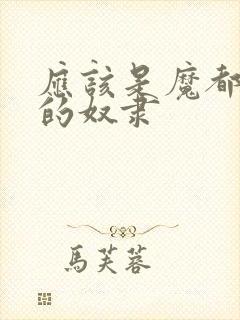 應該是魔都
的奴隶
馬芙蓉